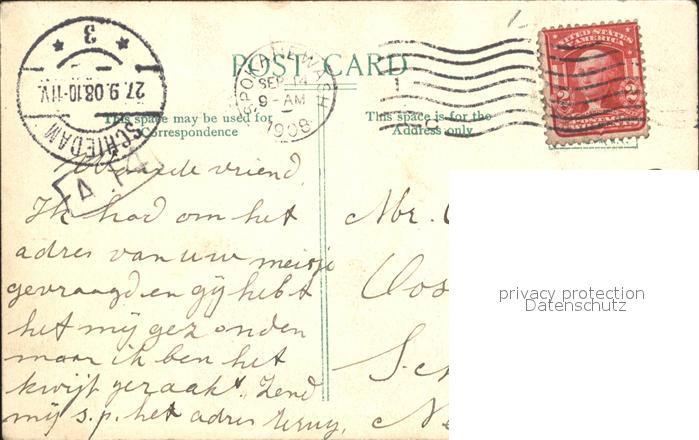 POST CARD
SCHIEDAM
3
27.9.08.10-11V.
SPOKANE WASH
SEP 14
9-AM
1908
UNITED STATES
OF AMERICA
This space may be used for
Correspondence
This space is for the
Address only
Waarde vriend
Ik had om het
adres van uw meisje
gevraagd en gij hebt
het mij gezonden
maar ik ben het
kwijt geraakt. Zend
mij s.p. het adres terug,
Mr.
privacy protection
Datenschutz